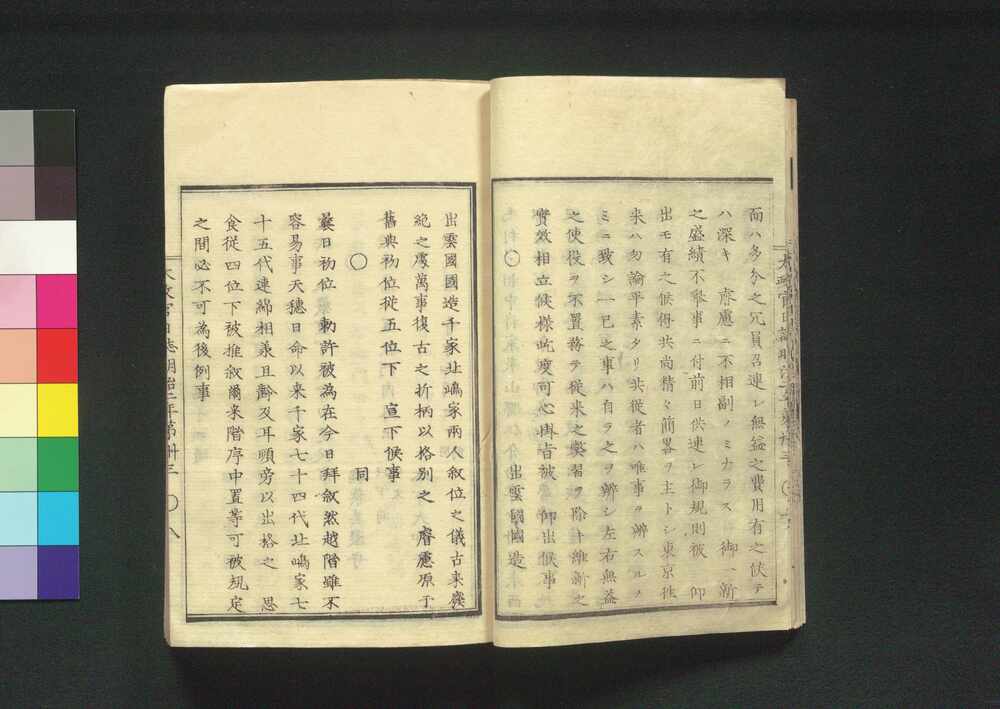 面ハ多分之冗員召連レ無益之費用有之候テ
ハ深キ 叡慮ニ不相副ノミナラス 御一新
之盛績不擧事ニ付前日供連レ御規則被 仰
出モ有之候得共尚精々簡畧ヲ主トシ東京往
来ハ勿論平素タリ共從者ハ唯事ヲ辨スルノ
ミニ致シ一己之事ハ自ラ之ヲ辨シ左右無益
之使役ヲ不置務テ従来之獘習ヲ除キ維新之
實效相立候様屹度可心掛旨被 仰出候事
〇 出雲國國造
出雲國國造千家北嶋家兩人叙位之儀古来廢
絶之處萬事復古之折柄以格別之 睿慮原于
舊典初位從五位下 宣下候事
〇 同
曩日初位 勅許被為在今日拜叙然越階雖不
容易事天穂日命以来千家七十四代北嶋家七
十五代連綿相義且齡及耳順旁以出格之 思
食従四位下被推叙爾来階序中置等可被規定
之間必不可為後例事
太政官日誌明治二年第卅三 〇 八